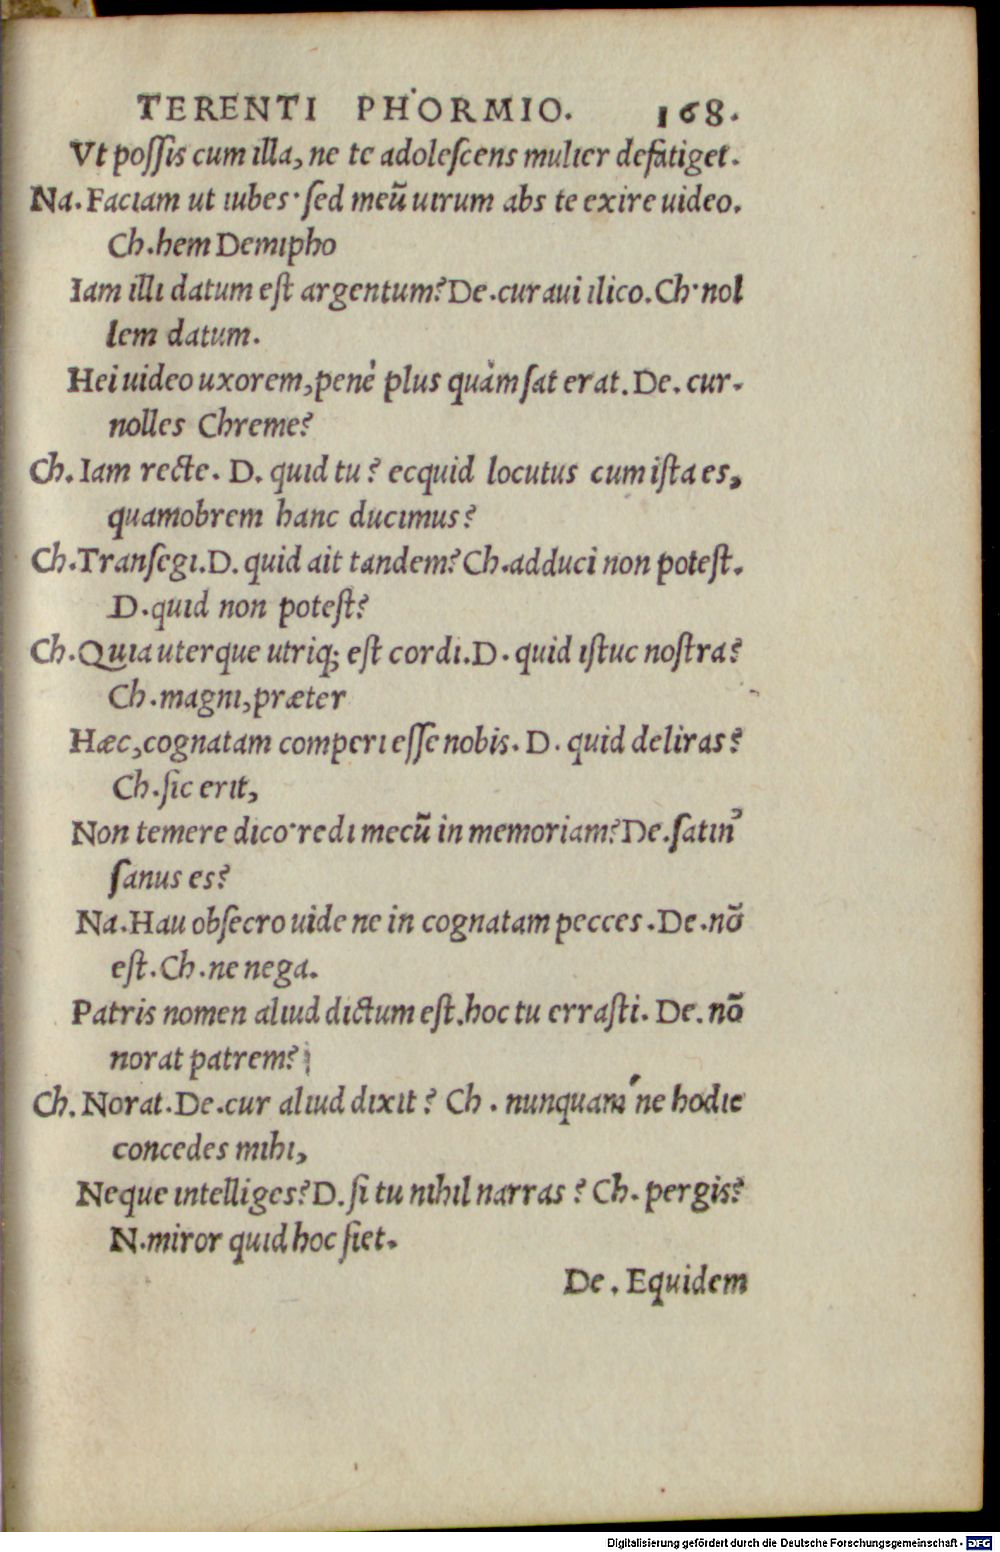 TERENTI PHORMIO. 168.
Vt poſſis cum illa, ne te adoleſcens mulier defatiget.
Na. Faciam ut iubes· ſed meũ uirum abs te exire uideo.
Ch. hem Demipho
Iam illi datum eſt argentum? De. curaui ilico. Ch· nol
lem datum.
Hei uideo uxorem, penè plus quàm ſat erat. De. cur.
nolles Chreme?
Ch. Iam recte. D. quid tu? ecquid locutus cum iſta es,
quamobrem hanc ducimus?
Ch. Tranſegi. D. quid ait tandem? Ch. adduci non poteſt.
D. quid non poteſt?
Ch. Quia uterque utriq; eſt cordi. D. quid iſtuc noſtra?
Ch. magni, præter
Hæc, cognatam comperi eſſe nobis. D. quid deliras?
Ch. ſic erit,
Non temere dico· redi mecũ in memoriam? De. ſatin'
ſanus es?
Na. Hau obſecro uide ne in cognatam pecces. De. nõ
eſt. Ch. ne nega.
Patris nomen aliud dictum eſt. hoc tu erraſti. De. nõ
norat patrem?
Ch. Norat. De. cur aliud dixit? Ch. nunquam'ne hodie
concedes mihi,
Neque intelliges? D. ſi tu nihil narras? Ch. pergis?
N. miror quid hoc ſiet.
De. Equidem
Digitalisierung gefördert durch die Deutsche Forschungsgemeinschaft - DFG